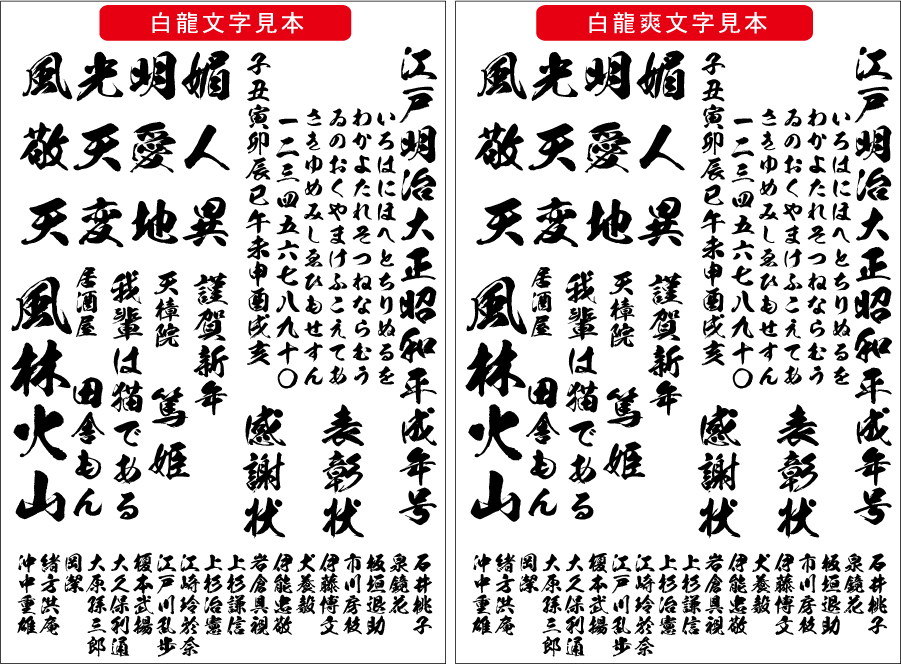 白龍文字見本
江戸明治大正昭和平成年号
いろはにほへとちりぬるを
わかよたれそつねならむう
ゐのおくやまけふこえてあ
さきゆめみしゑひもせすん
一二三四五六七八九十〇
子丑寅卯辰巳午未申酉戌亥
表彰状
感謝状
風光明媚
敬天愛人
天変地異
謹賀新年
天樟院 篤姫
我輩は猫である
居酒屋 田舎もん
風林火山
石井桃子
泉鏡花
板垣退助
市川房枝
伊藤博文
犬養毅
伊能忠敬
岩倉具視
上杉謙信
上杉治憲
江崎玲於奈
江戸川乱歩
榎本武揚
大久保利通
大原孫三郎
岡潔
緒方洪庵
沖中重雄
白龍爽文字見本
江戸明治大正昭和平成年号
いろはにほへとちりぬるを
わかよたれそつねならむう
ゐのおくやまけふこえてあ
さきゆめみしゑひもせすん
一二三四五六七八九十〇
子丑寅卯辰巳午未申酉戌亥
表彰状
感謝状
風光明媚
敬天愛人
天変地異
謹賀新年
天樟院 篤姫
我輩は猫である
居酒屋 田舎もん
風林火山
石井桃子
泉鏡花
板垣退助
市川房枝
伊藤博文
犬養毅
伊能忠敬
岩倉具視
上杉謙信
上杉治憲
江崎玲於奈
江戸川乱歩
榎本武揚
大久保利通
大原孫三郎
岡潔
緒方洪庵
沖中重雄